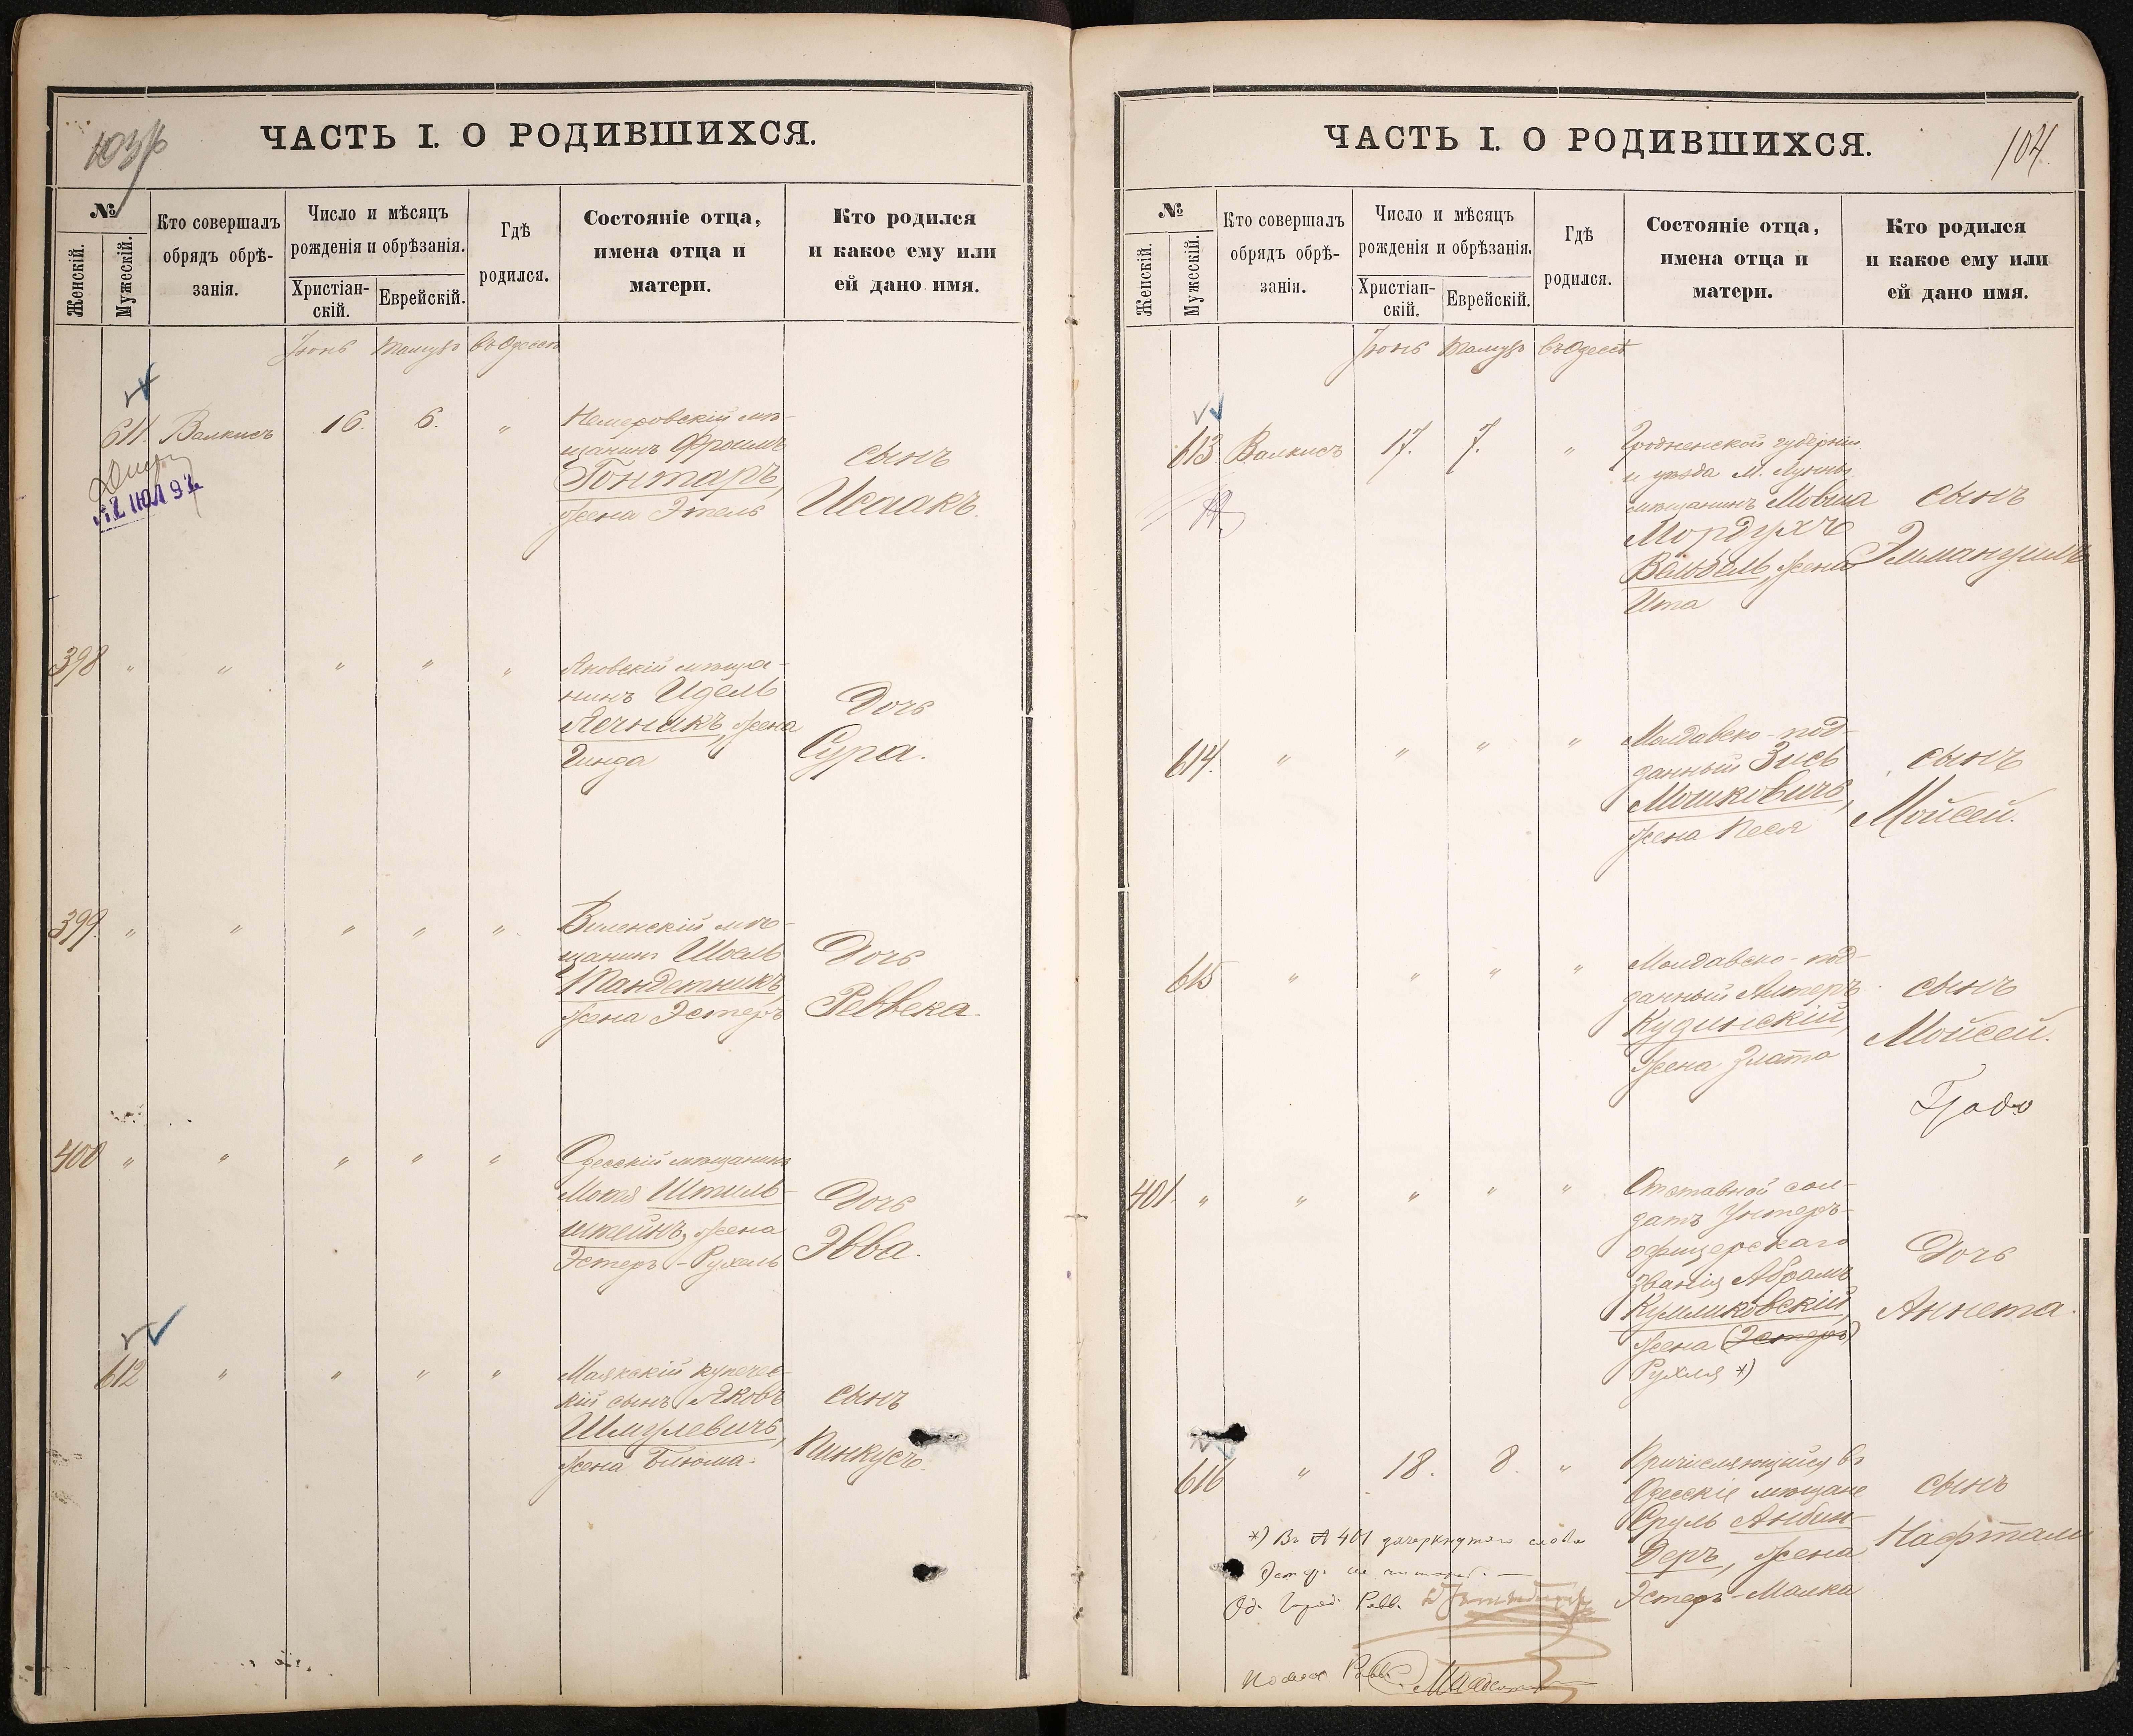 ЧАСТЬ I. О РОДИВШИХСЯ.
№
Женскій.
Мужескій.
Кто совершалъ
обрядъ обрѣ-
занія.
Число и мѣсяцъ
рожденія и обрѣзанія.
Христіан-
скій.
Еврейскій.
Гдѣ
родился.
Состояніе отца,
имена отца и
матери.
Кто родился
и какое ему или
ей дано имя.
Іюнь Тамузъ въ Одессѣ
611. Валкисъ 16. 6. "
12 ІЮЛ 97
Немеровскій мѣ-
щанинъ Фроимъ
Гонтаръ,
жена Этель
сынъ
Исаакъ.
398 " " " " "
Яновскій мѣща-
нинъ Идель
Лечникъ, жена
Гинда
Дочь
Сура.
399. " " " " "
Виленскій мѣ-
щанинъ Шоель
Тандетникъ,
жена Эстеръ
Дочь
Реввека.
400 " " " " "
Одесскій мѣщанинъ
Мотя Штиль-
штейнъ, жена
Эстеръ-Рухель
Дочь
Эвва.
612 " " " "
Маякскій купечес-
кій сынъ Яковъ
Шмулевичъ,
жена Блюма.
сынъ
Пинкусъ.
ЧАСТЬ I. О РОДИВШИХСЯ.
104.
№
Женскій.
Мужескій.
Кто совершалъ
обрядъ обрѣ-
занія.
Число и мѣсяцъ
рожденія и обрѣзанія.
Христіан-
скій.
Еврейскій.
Гдѣ
родился.
Состояніе отца,
имена отца и
матери.
Кто родился
и какое ему или
ей дано имя.
Іюнь Тамузъ въ Одессѣ
613. Валкисъ 17. 7. "
Гродненской губерніи
и уѣзда м. Лунны
мѣщанинъ Мовша
Мордухъ
Вельбель, жена
Ита
сынъ
Эммануилъ
614. " " " "
Молдавско-под-
данный Зись
Мошковичъ,
жена Песя
сынъ
Мойсей.
615 " " " "
Молдавско-под-
данный Алтеръ
Кудинскій,
жена Злата
сынъ
Мойсей.
401. " " " " "
Отставной сол-
датъ Унтеръ-
офицерскаго
званія Абрамъ
Куммиковскій,
жена (Эстеръ)
Рухля *)
Дочь
Аннета.
616 " 18. 8. "
Причисляющійся въ
Одесскіе мѣщане
Сруль Анбин-
деръ, жена
Эстеръ-Малка
сынъ
Нафтали
*) Въ № 401 зачеркнутого слова
Эстеръ не читать. —
Од. Город. Равв.